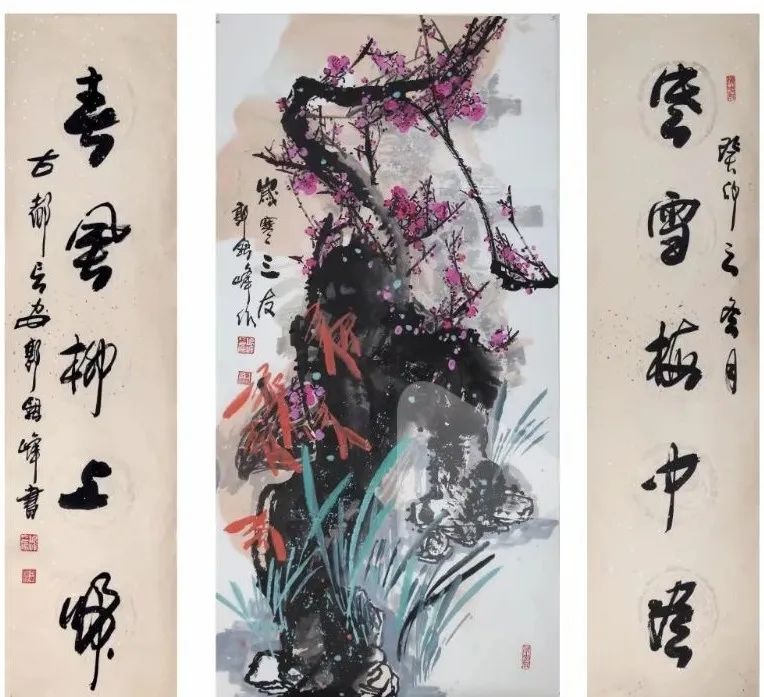 寒雪梅中盡
癸卯之冬月
歲寒三友
郭峰作
春風柳上歸
古都長安郭峰書